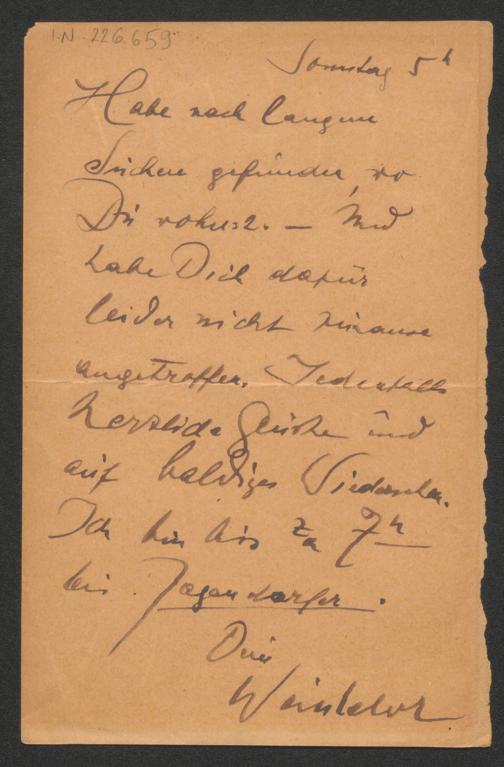 I.N. 226.659
Sonntag 5h
Habe nach langem
Suchen gefunden, wo
Du wohnst. — Und
habe Dich dafür
leider nicht zuhause
angetroffen. Jedenfalls
herzliche Grüße und
auf baldiges Wiedersehen.
Ich bin bis ca 7h
bei Jagendorfer.
Dein